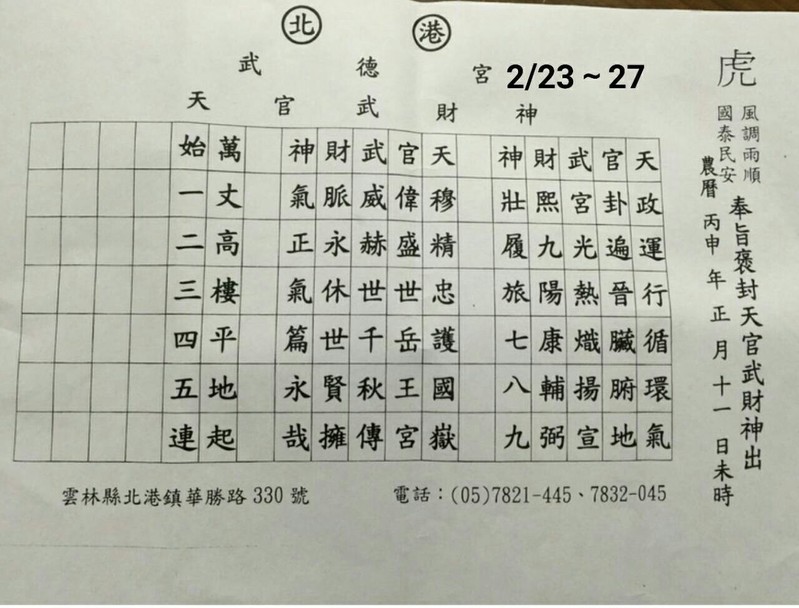 北 港
武 德 宮 2/23 ~ 27
天 官 武 財 神
虎
風調雨順
國泰民安
奉旨褒封天官武財神出
農曆 丙申年正月十一日未時
天政運行循環氣
官卦遍晉臟腑地
武宮光熱熾揚宣
財熙九陽康輔弼
神壯履旅七八九
天穆精忠護國嶽
官偉盛世岳王宮
武威赫世千秋傳
財脈永休世賢擁
神氣正氣篇永哉
萬丈高樓平地起
始一二三四五連
雲林縣北港鎮華勝路 330 號
電話：(05)7821-445、7832-045